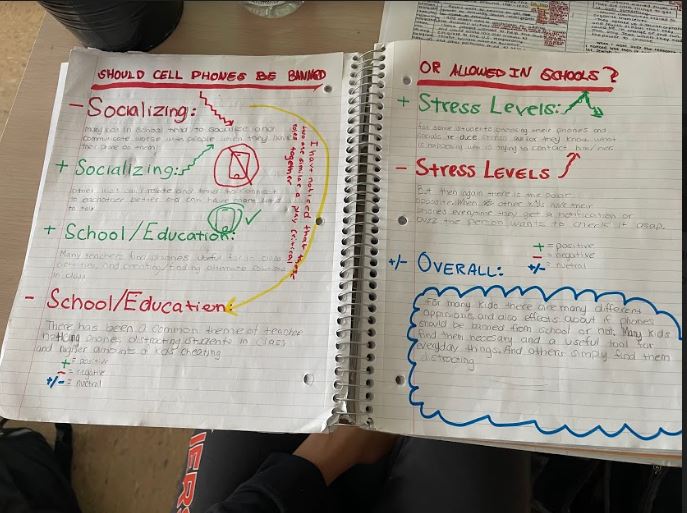 SHOULD CELL PHONES BE BANNED
- Socializing:
Many kids in school tend to socialize and
communicate worse with people when they have
their phone on them
+ Socializing:
Other kids can relate and tend to connect
to eachother better and can have more
to talk
+ School/Education:
Many teachers find phones useful for in class
activities and creating/finding alternate solutions
in class
- School/Education:
There has been a common theme of teacher
noticing phones distracting students in class
and higher amounts of kids cheating
+ = positive
- = negative
+/- = nuetral
I have noticed that these
two are similar & play critical
roles together
OR ALLOWED IN SCHOOLS?
+ Stress Levels:
For some students checking their phones and
reduce stress they know what
is happening who is trying to contact him/her.
- Stress Levels
But then again there is the polar
opposite. When other kids have their
phones everytime they get a notification or
buzz the person wants to check it asap.
+ = positive
- = negative
+/- = nuetral
+/- OVERALL:
For many kids there are many different
oppinions and also effects about if phones
should be banned from school or not. Many kids
find them necesary and a useful tool for
everyday things. And others simply find them
distracting